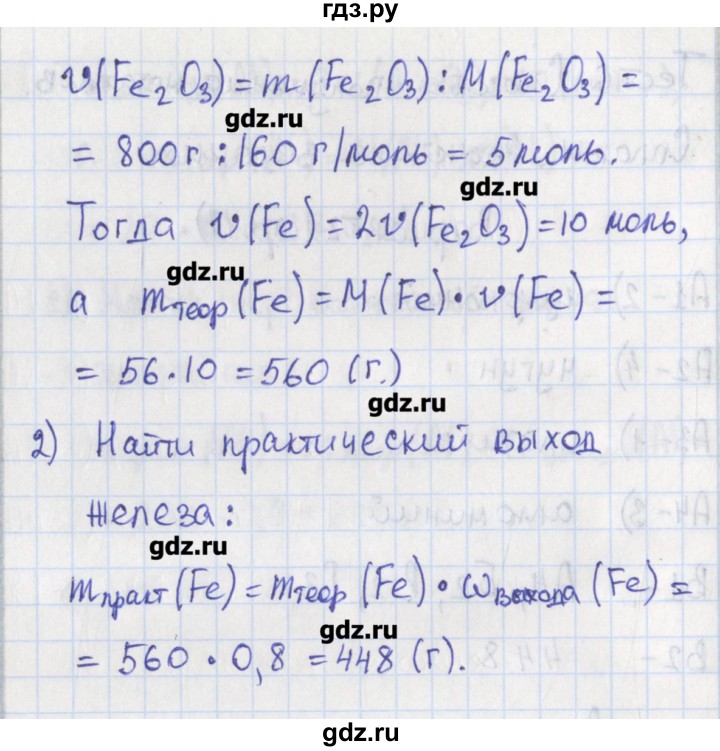 гдз.ру
ν(Fe₂O₃) = m(Fe₂O₃) : M(Fe₂O₃) =
gdz.ru
= 800 г : 160 г/моль = 5 моль.
gdz.ru
Тогда ν(Fe) = 2ν(Fe₂O₃) = 10 моль,
gdz.ru
а mтеор(Fe) = M(Fe)·ν(Fe) =
= 56·10 = 560 (г.)
gdz.ru
2) Найти практический выход
железа:
gdz.ru
mпракт(Fe) = mтеор(Fe)·ωвыхода(Fe) =
gdz.ru
= 560·0,8 = 448 (г).
gdz.ru